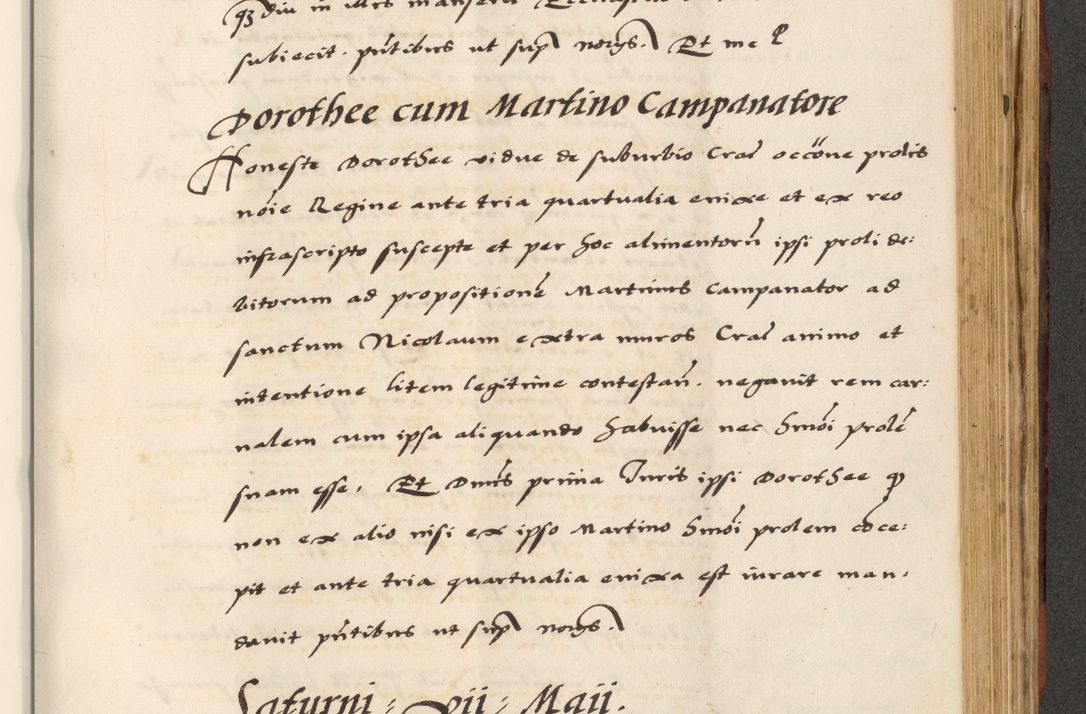 diu in
subiecit. pn̄tibus ut sup̄ nor̄gs. Et me
Dorothee cum Martino Campanatore
Honeste Dorothee vidue de suburbio Crac̄ occōne prolis
nōie Regine ante tria quartualia enixe et ex reo
infrascripto suscepte et per hoc alimentorū ipsi proli de:
bitorum ad propositionē Martinus Campanator ad
sanctum Nicolaum extra muros Crac̄ animo et
intentione litem legitime contestan̄. negavit rem car:
nalem cum ipsa aliquando habuisse nec hmōi prolē
suam esse. Et Dnūs prima Iuris ipsi Dorothee ꝙ
non ex alio nisi ex ipso Martino hmōi prolem cōce:
pit et ante tria quartualia enixa est iurare man,
davit pn̄tibus ut sup̄ nor̄gs.
Saturni : vii : Maii.